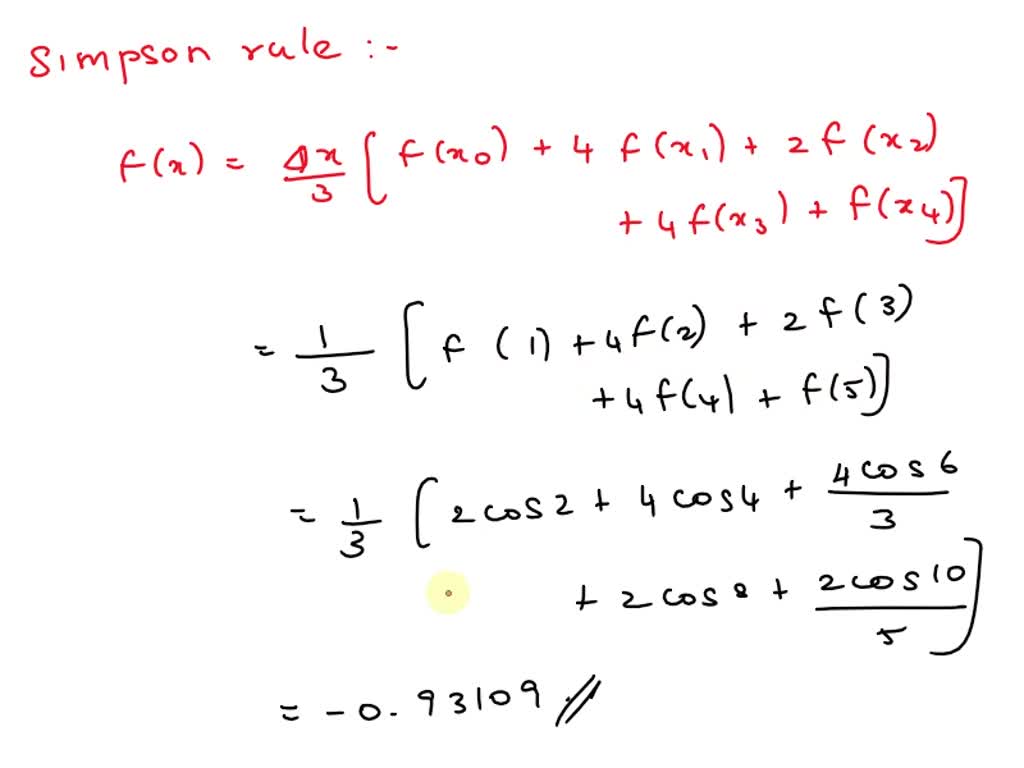 Simpson rule :-
f(x) = Δx/3 [ f(x0) + 4 f(x1) + 2 f(x2)
+ 4 f(x3) + f(x4)]
= 1/3 [ f (1) + 4 f(2) + 2 f(3)
+ 4 f(4) + f(5)]
= 1/3 [ 2 cos 2 + 4 cos 4 + 4 cos 6/3
+ 2 cos 8 + 2 cos 10/5 ]
= -0.93109 //